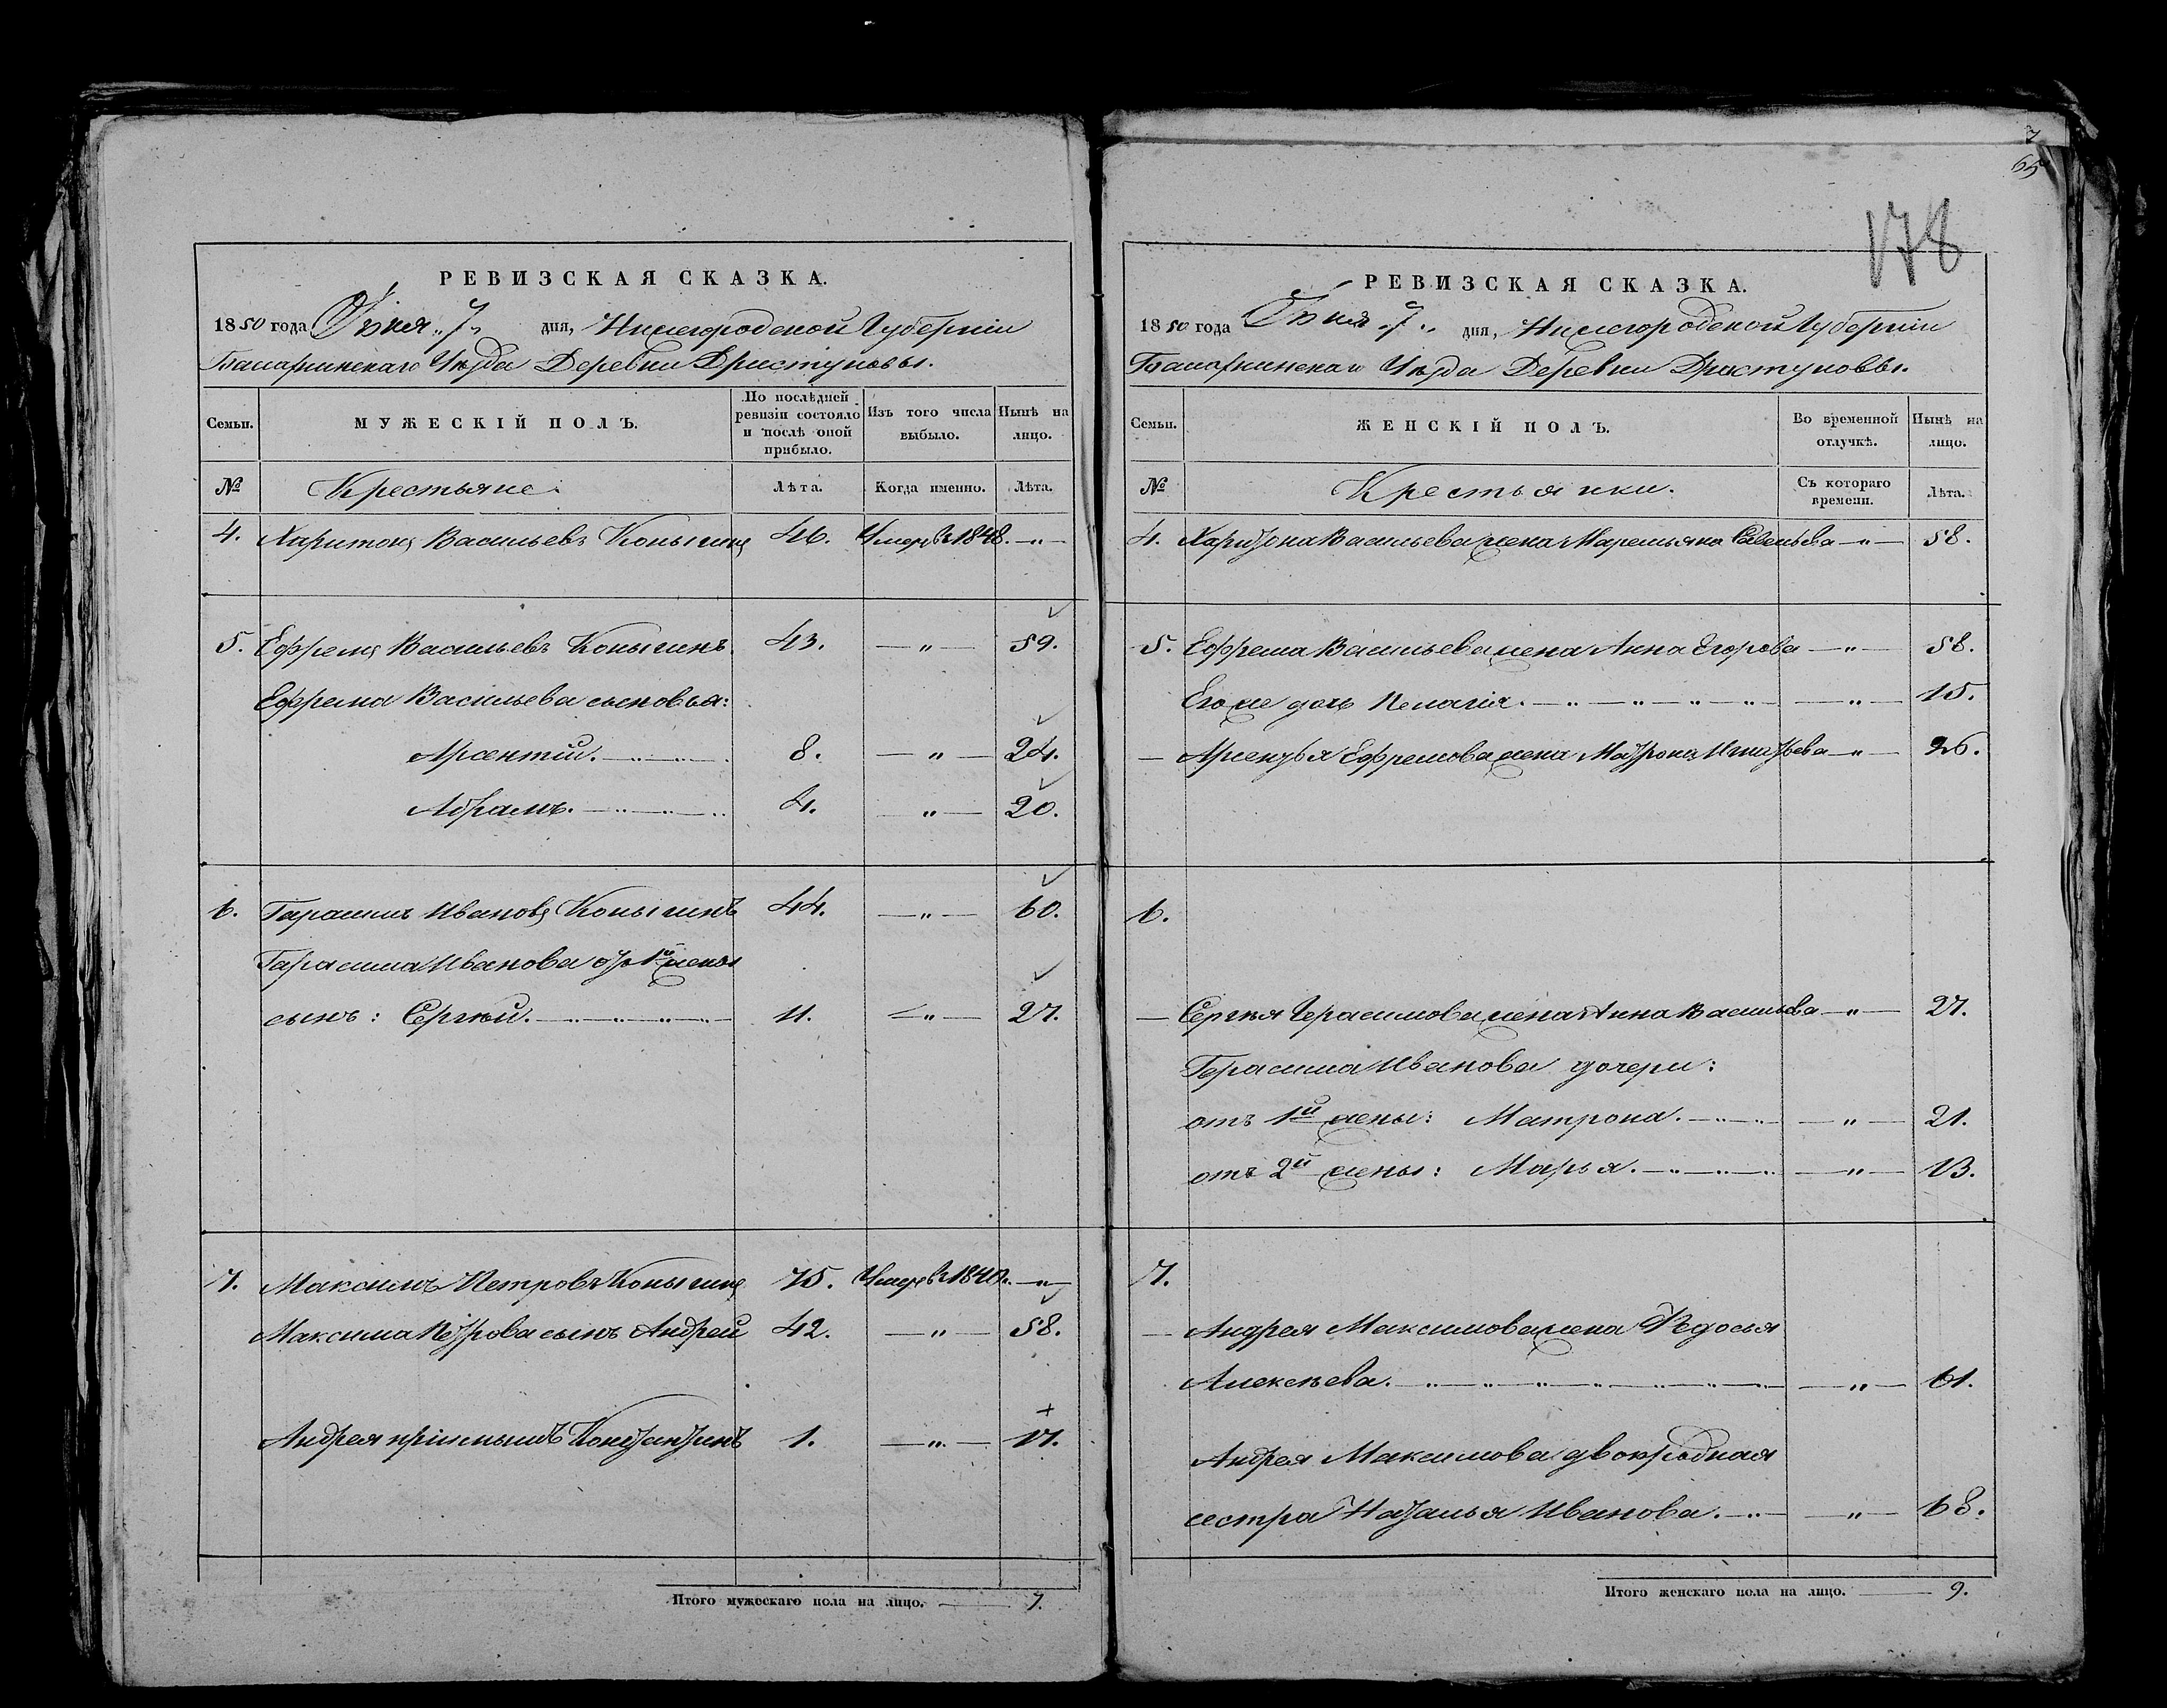 7
65
178
РЕВИЗСКАЯ СКАЗКА.
1850 года Іюня „7„ дня, Нижегородской Губерніи
Балахнинскаго Уѣзда Деревни Дристуновы.
Семьи.
МУЖЕСКІЙ ПОЛЪ.
По послѣдней ревизіи состояло и послѣ оной прибыло.
Изъ того числа выбыло.
Нынѣ на лицо.
№ Крестьяне. Лѣта. Когда именно. Лѣта.
4. Харитонъ Васильевъ Копыгинъ 46. Умеръ въ 1848. —„—
5. Ефремъ Васильевъ Копыгинъ 43. —„— 59.
Ефрема Васильева сыновья:
Арсентій. 8. —„— 24.
Абрамъ. 4. „— 20.
6. Гарасимъ Ивановъ Копыгинъ 44. —„— 60.
Гарасима Иванова отъ 1й жены
сынъ: Сергѣй. 11. —„— 27.
7. Максимъ Петровъ Копыгинъ 75. Умеръ въ 1840. —„—
Максима Петрова сынъ Андрей 42. —„— 58.
Андрея пріемышъ Константинъ 1. —„— 17.
Итого мужескаго пола на лицо. — 7.
РЕВИЗСКАЯ СКАЗКА.
1850 года Іюня „7„ дня, Нижегородской Губерніи
Балахнинскаго Уѣзда Деревни Дристуновы.
Семьи.
ЖЕНСКІЙ ПОЛЪ.
Во временной отлучкѣ.
Нынѣ на лицо.
№ Крестьянки. Съ котораго времени. Лѣта.
4. Харитона Васильева жена Маремьяна Савельева —„— 58.
5. Ефрема Васильева жена Анна Егорова —„— 58.
Его же дочь Пелагія. —„— 15.
— Арсентья Ефремова жена Матрона Игнатьева —„— 26.
6.
— Сергѣя Герасимова жена Анна Васильева —„— 27.
Герасима Иванова дочери:
отъ 1й жены: Матрона. —„— 21.
отъ 2й жены: Марья. —„— 13.
7.
— Андрея Максимова жена Ѳедосья
Алексѣева. —„— 61.
Андрея Максимова двоюродная
сестра Наталья Иванова. —„— 68.
Итого женскаго пола на лицо. — 9.